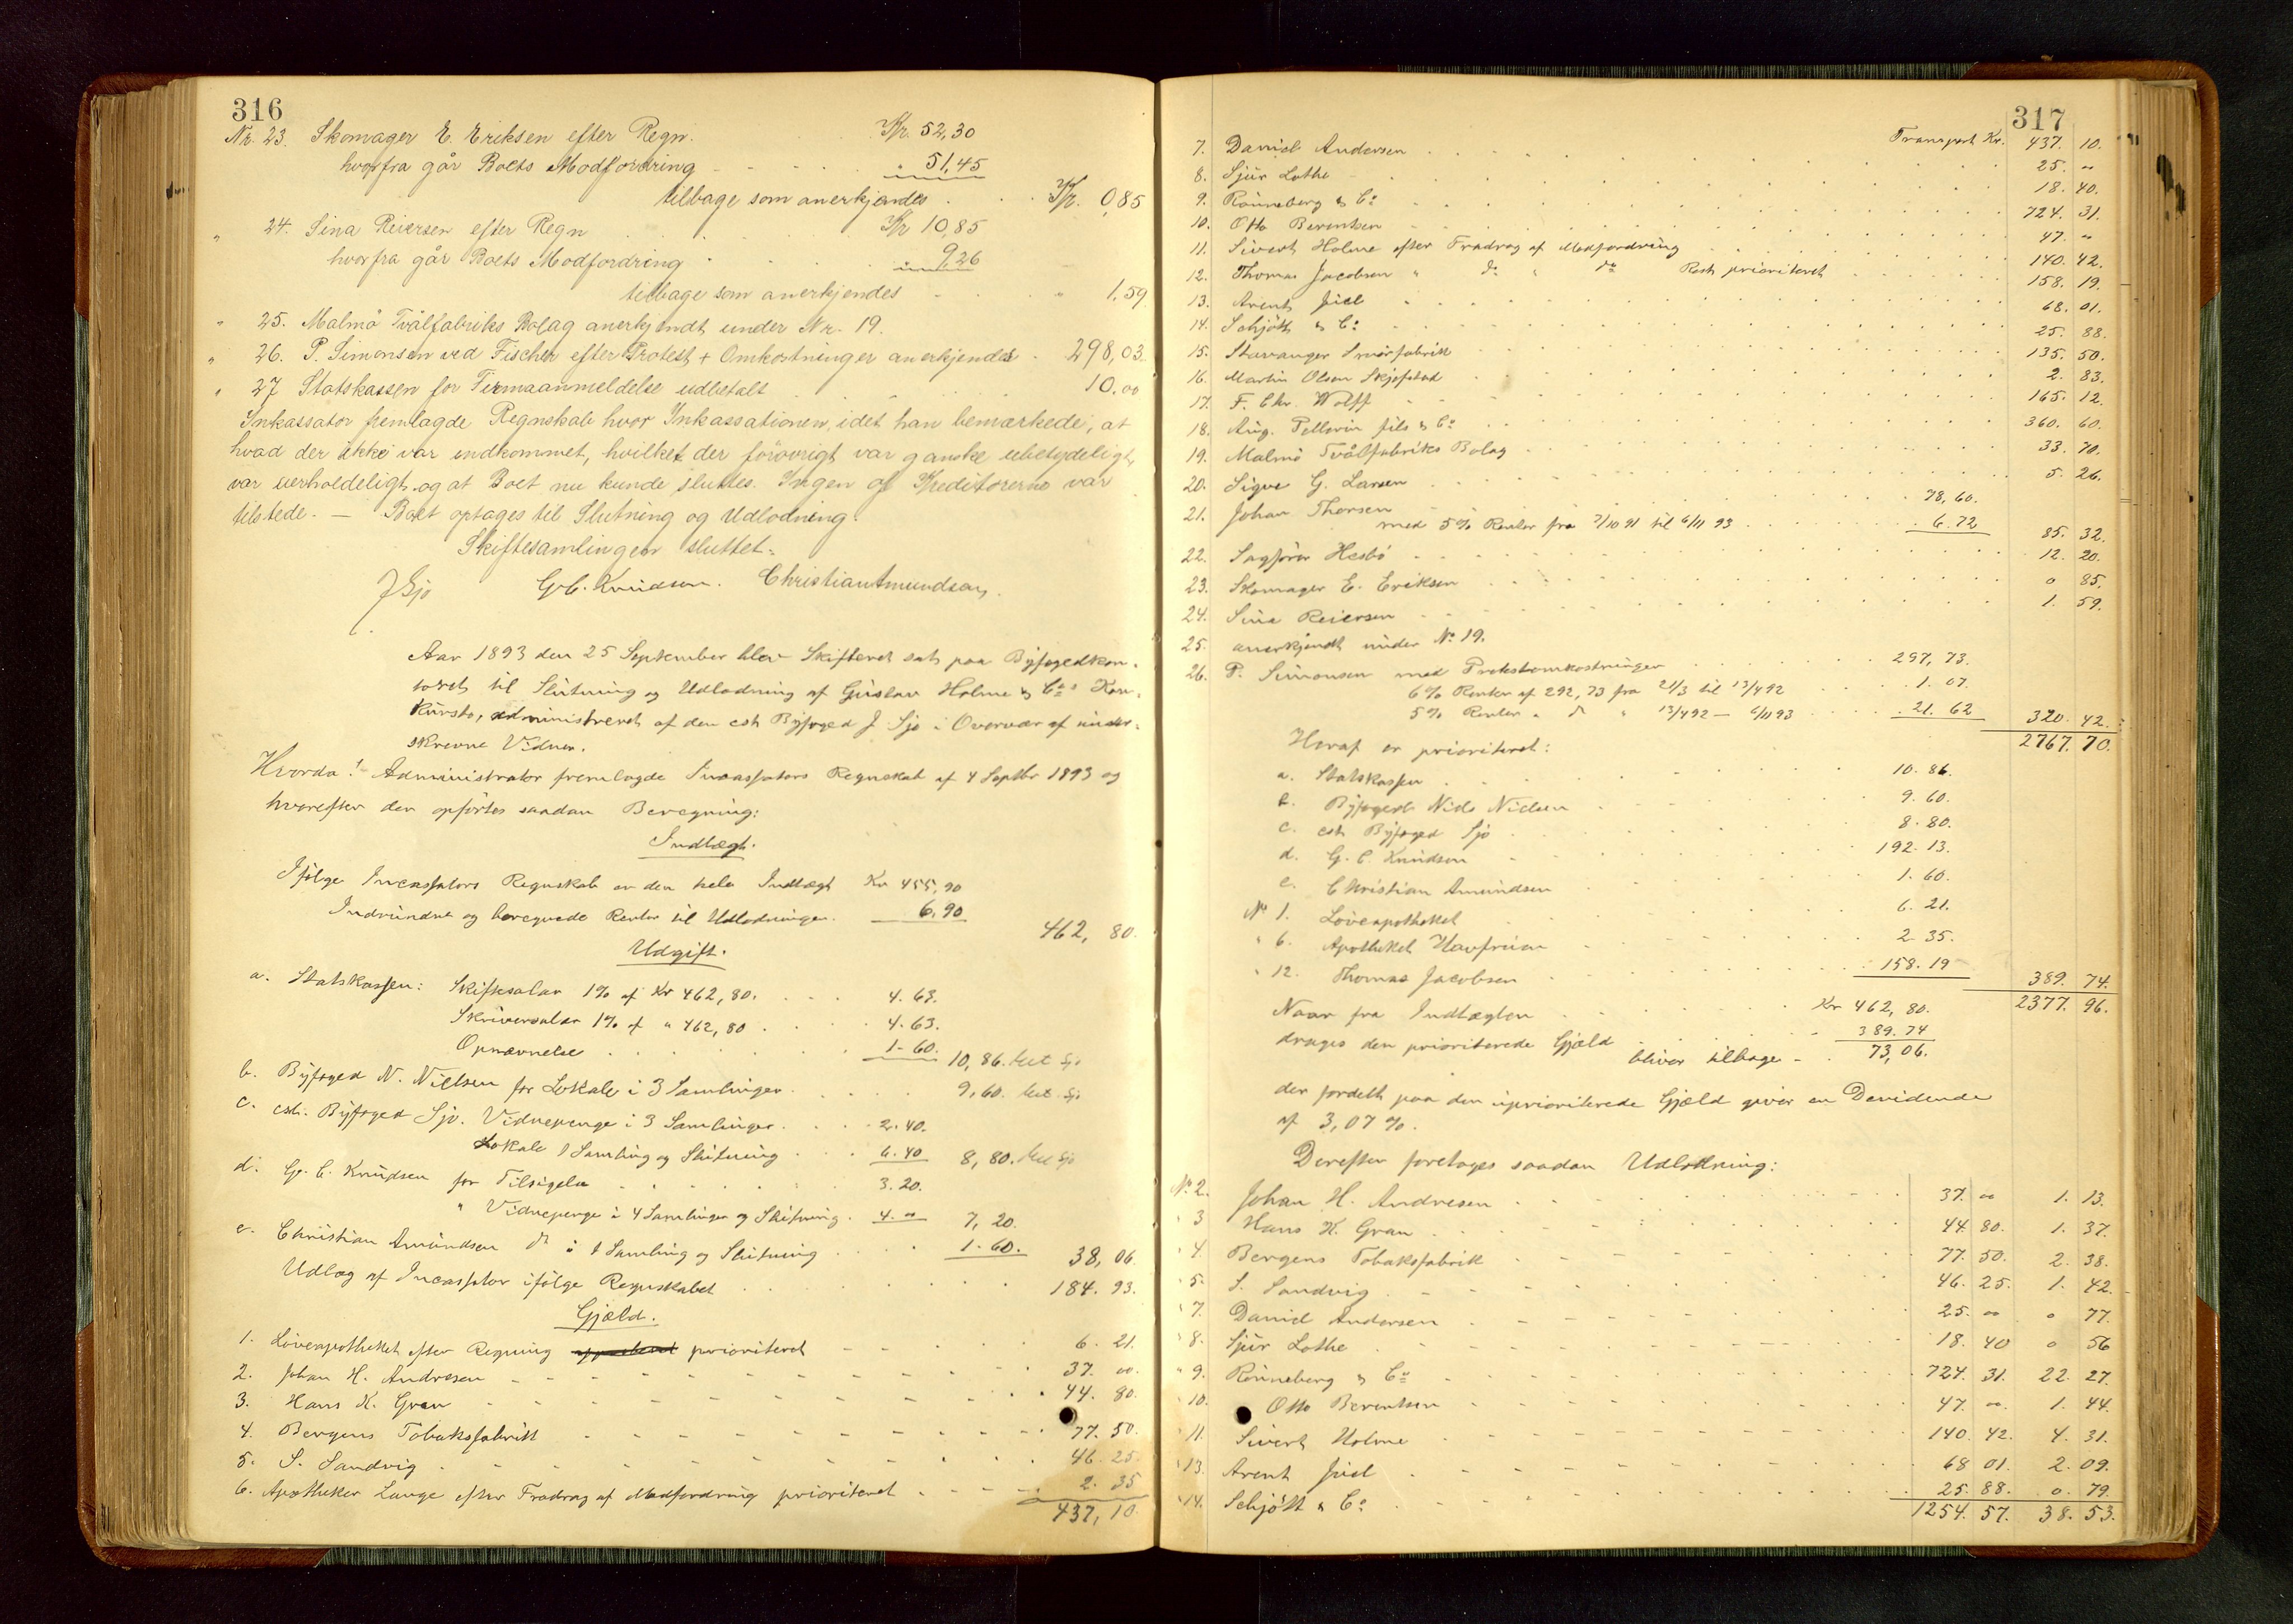 316
Nr. 23. Skomager E. Eriksen efter Regn. Kr. 52,30
hvorfra går Boets Modfordring " 51,45
tilbage som anerkjendes Kr. 0,85
" 24. Sina Reiersen efter Regn Kr 10,85
hvorfra går Boets Modfordring 9,26
tilbage som anerkjendes " 1,59
" 25. Malmö Tvålfabriks Bolag anerkjendt under Nr. 19.
" 26. P. Simonsen ved Fischer efter Protest + Omkostninger anerkjendes 298,03.
" 27 Statskassen for Firmaanmeldelse udbetalt 10.00
Inkassator fremlagde Regnskab hvor Inkassationen, idet han bemærkede, at
hvad der ikke var indkommet, hvilket der forövrigt var ganske ubetydeligt,
var uerholdeligt og at Boet nu kunde sluttes. Ingen af Kreditorerne var
tilstede. — Boet optages til Slutning og Udlodning.
Skiftesamlingen sluttet.
J Sjo G. C. Knudsen. Christian Amundsen.
Aar 1893 den 25 September blev Skifteret sat paa Byfogedkon-
toret til Slutning og Udlodning af Gustav Holme & Co's Kon-
kursbo, administreret af den cst Byfoged J Sjo i Overvær af under-
skrevne Vidner.
Hvorda! Administrator fremlagde Incassators Regnskab af 4 Septbr 1893 og
hvorefter den opførtes saadan Beregning:
Indtægt.
Ifølge Incassators Regnskab er den hele Indtægt Kr 455,90
Indvundne og beregnede Renter til Udlodningen. 6,90
462, 80.
Udgift.
a. Statskassen: Skiftesalær 1% af Kr 462,80. 4. 63.
Skriversalær 1% af " 462,80 4. 63.
Opnævnelse 1- 60. 10, 86. bet Sjo
b. Byfoged N. Nielsen for Lokale i 3 Samlinger 9, 60. bet. Sjo
c. cst. Byfoged Sjo. Vidnepenge i 3 Samlinger 2. 40.
Lokale 1 Samling og Slutning 6. 40 8, 80. bet Sjo
d. G. C. Knudsen for Tilsigelse 3. 20.
" Vidnepenge i 4 Samlinger og Slutning 4. " 7, 20.
e. Christian Amundsen do i 1 Samling og Slutning 1- 60. 38, 06.
Udlæg af Incassator ifølge Regnskabet 184. 93.
Gjæld.
1. Løveapotheket efter Regning prioriteret 6. 21.
2. Johan H. Andresen 37. 00.
3. Hans K. Gran 44. 80.
4. Bergens Tobaksfabrik 77. 50.
5. S. Sandvig 46. 25.
6. Apotheker Lange efter Fradrag af Modfordring prioriteret 2. 35
437, 10.
317
Transport Kr. 437. 10.
7. Daniel Andersen 25. "
8. Sjur Lothe 18. 40.
9. Rönneberg & Co 724. 31.
10. Otto Berentsen 47. "
11. Sivert Holme efter Fradrag af Modfordring 140. 42.
12. Thomas Jacobsen " do " do Rest prioriteret 158. 19.
13. Arent Juel 68. 01.
14. Schjött & Co 25. 88.
15. Stavanger Smörfabrik 135. 50.
16. Martin Olsen Skjefstad 2. 83.
17. F. Chr. Wolff 165. 12.
18. Aug. Pellerin fils & Co 360. 60.
19. Malmö Tvålfabriks Bolag 33. 70.
20. Sigve G. Larsen 5. 26.
21. Johan Thorsen 78, 60.
med 5% Renter fra 7/10 91 til 6/11 93 6. 72 85. 32.
22. Sagförer Hesbö 12. 20.
23. Skomager E. Eriksen 0 85.
24. Sina Reiersen 1. 59.
25. anerkjendt under No 19.
26. P. Simonsen med Protestomkostninger 297, 73.
6% Renter af 292,73 fra 21/3 til 13/4 92 1. 07.
5% Renter " do " 13/4 92 — 6/11 93 21. 62 320. 42.
2767. 70.
Heraf er prioriteret:
a. Statskassen 10. 86.
b. Byfoged Niels Nielsen 9. 60.
c. cst Byfoged Sjo 8. 80.
d. G. C. Knudsen 192. 13.
e. Christian Amundsen 1. 60.
No 1. Løveapotheket 6. 21.
" 6. Apotheket Havfruen 2. 35.
" 12. Thomas Jacobsen 158. 19 389. 74.
2377. 96.
Naar fra Indtægten Kr 462, 80.
drages den prioriterede Gjæld 389. 74
bliver tilbage 73, 06.
der fordelt paa den uprioriterede Gjæld giver en Devidende
af 3,07 %.
Derefter foretages saadan Udlodning:
No 2. Johan H. Andresen 37. " 1. 13.
" 3 Hans K. Gran 44 80. 1. 37.
" 4. Bergens Tobaksfabrik 77. 50. 2. 38.
" 5. S. Sandvig 46. 25. 1. 42.
" 7. Daniel Andersen 25. " 0 77.
" 8. Sjur Lothe 18. 40 0 56
" 9. Rönneberg & Co 724. 31. 22. 27.
10. Otto Berentsen 47. " 1. 44.
11. Sivert Holme 140. 42. 4. 31.
" 13. Arent Juel 68 01. 2. 09.
" 14. Schjött & Co 25. 88. 0. 79.
1254. 57. 38. 53.